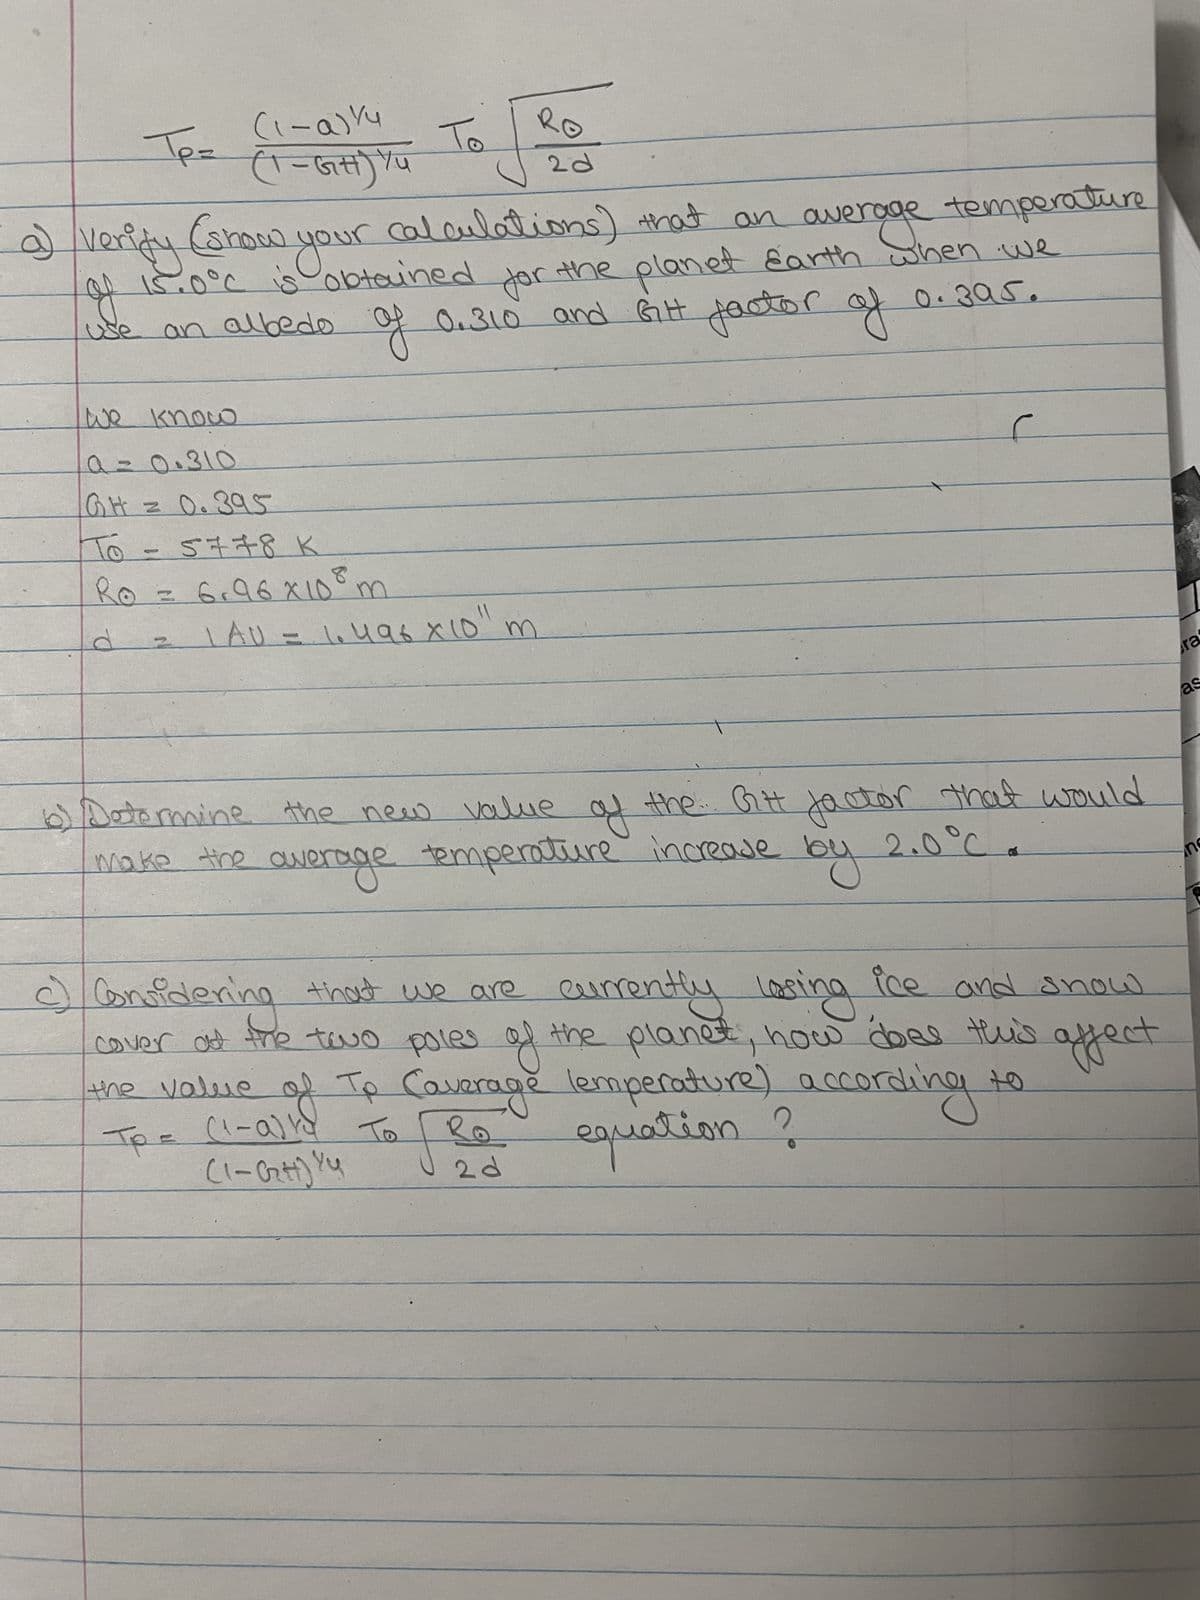 Tp = (1-a)^1/4 / (1-GH)^1/4 T⊙ √(R⊙ / 2d)
a) Verify (show your calculations) that an average temperature
of 15.0°C is obtained for the planet Earth when we
use an albedo of 0.310 and GH factor of 0.395.
We know
a = 0.310
GH = 0.395
T⊙ = 5778 K
R⊙ = 6.96 x 10^8 m
d = 1 AU = 1.496 x 10^11 m
b) Determine the new value of the GH factor that would
make the average temperature increase by 2.0°C.
c) Considering that we are currently losing ice and snow
cover at the two poles of the planet, how does this affect
the value of Tp (average temperature) according to
Tp = (1-a)^1/4 / (1-GH)^1/4 T⊙ √(R⊙ / 2d) equation ?
ra
as